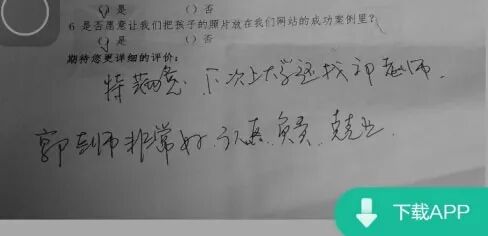 (√) 是 () 否
6 是否愿意让我们把孩子的照片放在我们网站的成功案例里?
(√) 是 () 否
期待您更详细的评价:
特满意. 下次上大学还找郭老师.
郭老师非常好, 认真. 负责. 敬业.
下载APP